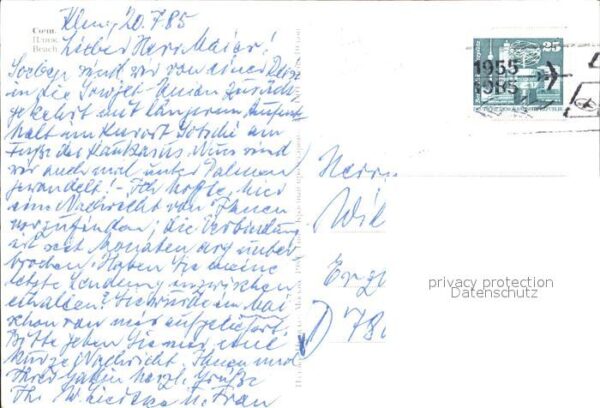 20.7.85
Lieber Herr Maier!
Soeben sind wir von einer Reise
in die Sowjet-Union zurück-
gekehrt mit längerem Aufent-
halt am Kurort Sotschi am
Fuße des Kaukasus. Nun sind
wir auch mal unter Palmen
gewandelt! - Ich hoffte, hier
eine Nachricht von Ihnen
vorzufinden; die Verbindung
ist seit Monaten arg unter-
brochen. Haben Sie meine
letzte Sendung inzwischen
erhalten? Sie wurde im Mai
schon von mir aufgeliefert.
Bitte geben Sie mir eine
kurze Nachricht. Ihnen und
Ihrer Gattin herzl. Grüße
Ihr u. Frau
Сочи.
Пляж
Beach
25
1955
1985
Herrn
D 78
privacy protection
Datenschutz